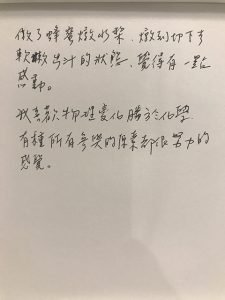 做了蜂蜜燉水梨、燉到切下會
軟嫩出汁的狀態、覺得有一點
感動。
我喜歡物理變化勝於化學
有種所有參與的隊素都很努力的
感覺。